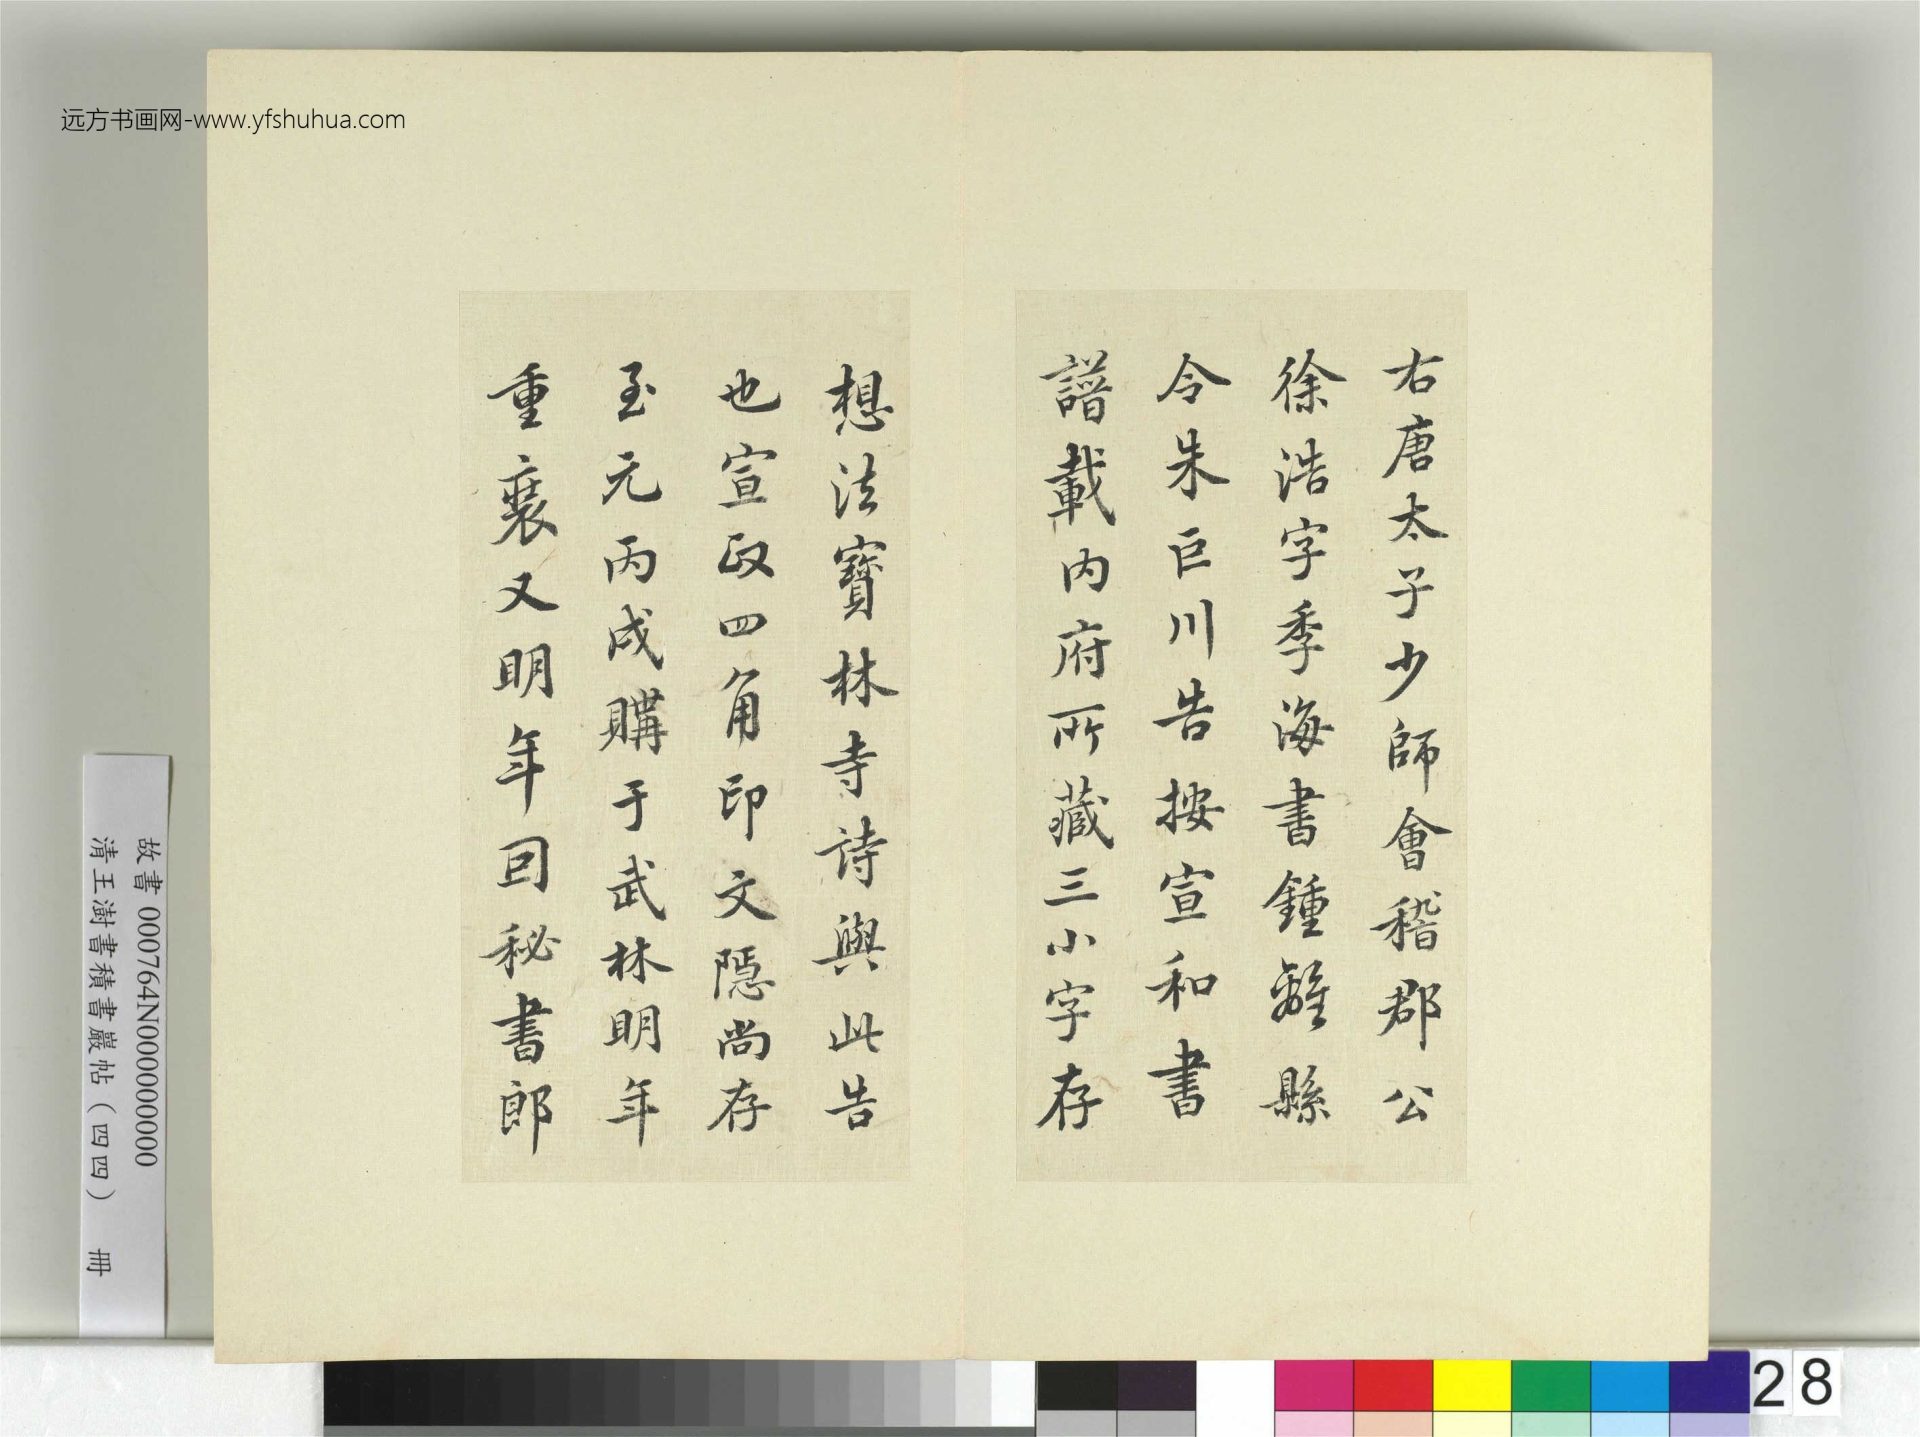 远方书画网-www.yfshuhua.com
右唐太子少師會稽郡公
徐浩字季海書鍾離縣
令朱巨川告按宣和書
譜載内府所藏三小字存
想法寶林寺詩與此告
也宣政四角印文隱尚存
至元丙戌購于武林明年
重裝又明年囙秘書郎
故書000764N000000000
清王澍書積書巖帖（四四） 冊
28